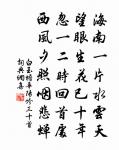 海南一片水雲天
望眼生花已十年
忽一二時回首處
西風夕照咽悲蟬
白玉蟾華陽吟三十首
詞典網書